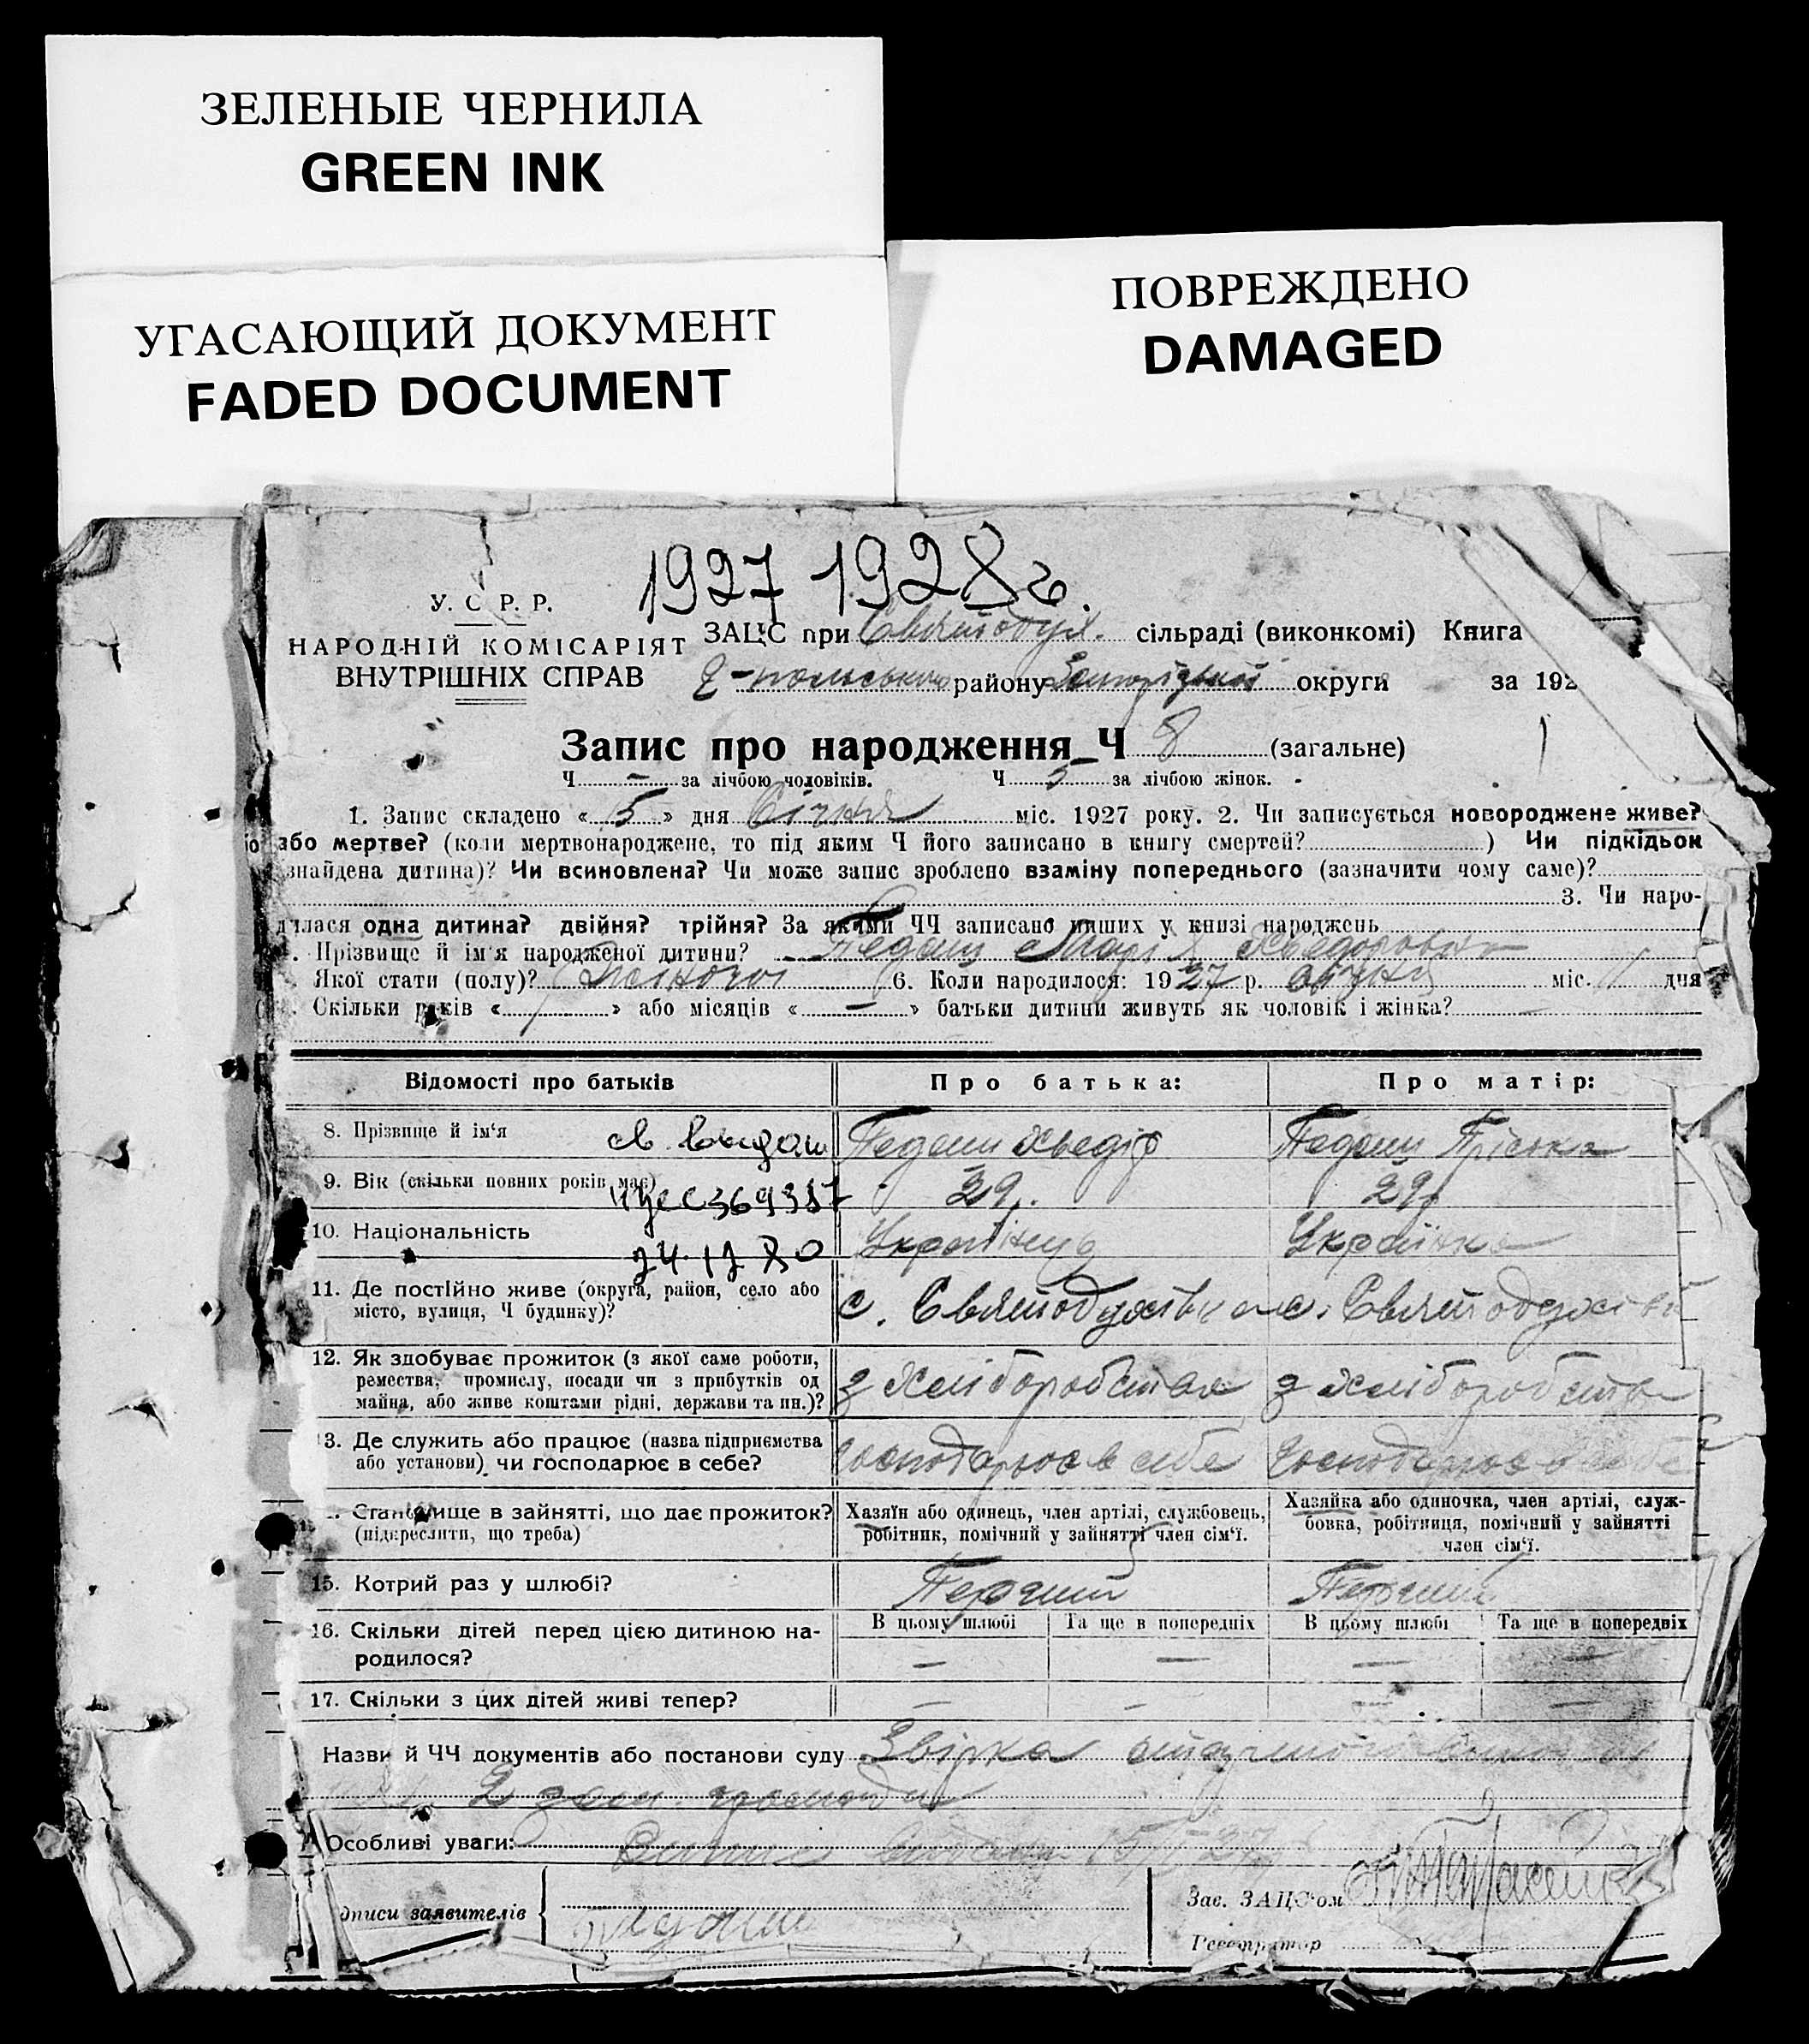 ЗЕЛЕНЫЕ ЧЕРНИЛА
GREEN INK
УГАСАЮЩИЙ ДОКУМЕНТ
FADED DOCUMENT
ПОВРЕЖДЕНО
DAMAGED
1927 1928г.
У. С. Р. Р.
НАРОДНІЙ КОМІСАРІЯТ
ВНУТРІШНІХ СПРАВ
ЗАЦС при Святодух. сільраді (виконкомі) Книга
району округи за 192
Запис про народження Ч 8 (загальне)
Ч — за лічбою чоловіків. Ч 5 за лічбою жінок.
1. Запис складено « 5 » дня Січня міс. 1927 року. 2. Чи записується новороджене живе?
або мертве? (коли мертвонароджене, то під яким Ч його записано в книгу смертей? ) Чи підкідьок
знайдена дитина)? Чи всиновлена? Чи може запис зроблено взаміну попереднього (зазначити чому саме)?
3. Чи наро-
дилася одна дитина? двійня? трійня? За якими ЧЧ записано инших у книзі народжень
Прізвище й ім'я народженої дитини? Педаш
Якої стати (полу)? Жіночої 6. Коли народилося: 1927 р. січня міс. 1 дня
Скільки років « » або місяців « — » батьки дитини живуть як чоловік і жінка?
Відомості про батьків
Про батька:
Про матір:
8. Прізвище й ім'я
Педаш Хведір
Педаш Пріська
9. Вік (скільки повних років має)
29
29
10. Національність
Українець
Українка
11. Де постійно живе (округа, район, село або
місто, вулиця, Ч будинку)?
с. Святодухівка
с. Святодухівка
12. Як здобуває прожиток (з якої саме роботи,
ремества, промислу, посади чи з прибутків од
майна, або живе коштами рідні, держави та ин.)?
з хліборобства
з хліборобства
13. Де служить або працює (назва підприємства
або установи) чи господарює в себе?
господарює в себе
господарює в себе
Становище в зайнятті, що дає прожиток?
(підкреслити, що треба)
Хазяїн або одинець, член артілі, службовець,
робітник, помічний у зайнятті член сім'ї.
Хазяйка або одиночка, член артілі, служ-
бовка, робітниця, помічний у зайнятті
член сім'ї.
15. Котрий раз у шлюбі?
Перший
Перший
16. Скільки дітей перед цією дитиною на-
родилося?
В цьому шлюбі
Та ще в попередніх
В цьому шлюбі
Та ще в попередніх
— — — —
17. Скільки з цих дітей живі тепер?
— — — —
Назви й ЧЧ документів або постанови суду
Особливі уваги:
дписи заявителів
Педаш
Зав. ЗАЦС'ом
Реєстратор